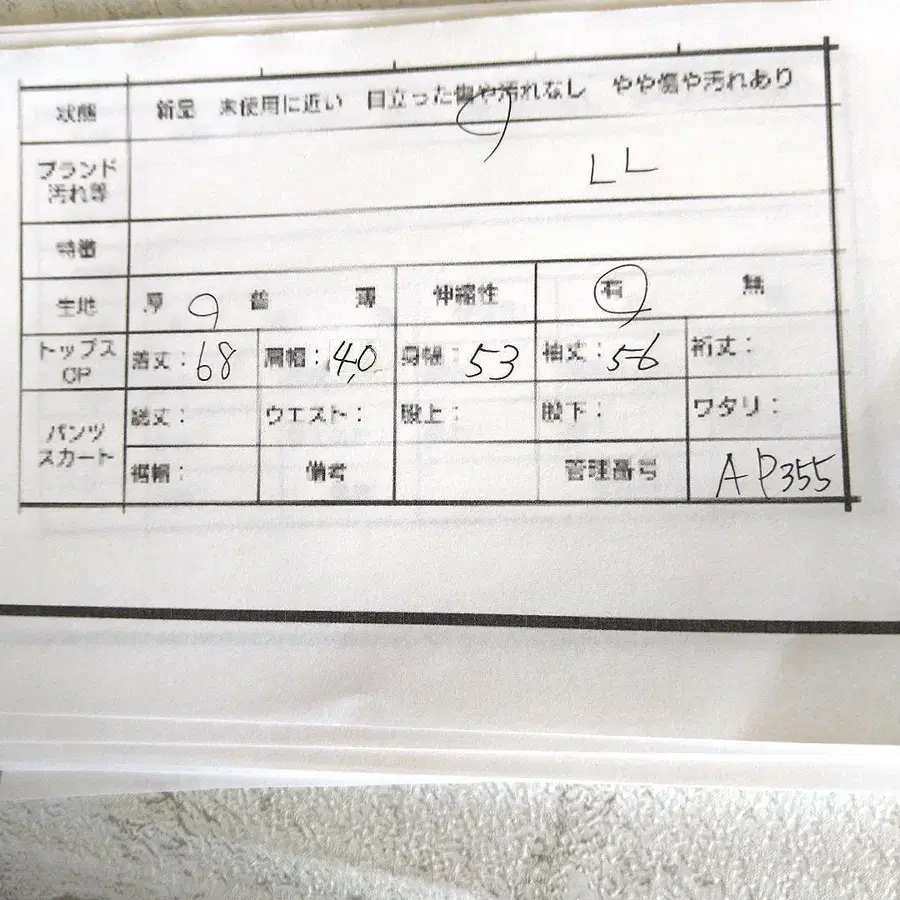 状態 新品 未使用に近い 目立った傷や汚れなし やや傷や汚れあり
ブランド
汚れ等
LL
特徴
生地 厚 普 薄 伸縮性 有 無
トップス
OP
着丈:68 肩幅:40 身幅:53 袖丈:56 裄丈:
パンツ
スカート
総丈: ウエスト: 股上: 股下: ワタリ:
裾幅: 備考 管理番号 AP355